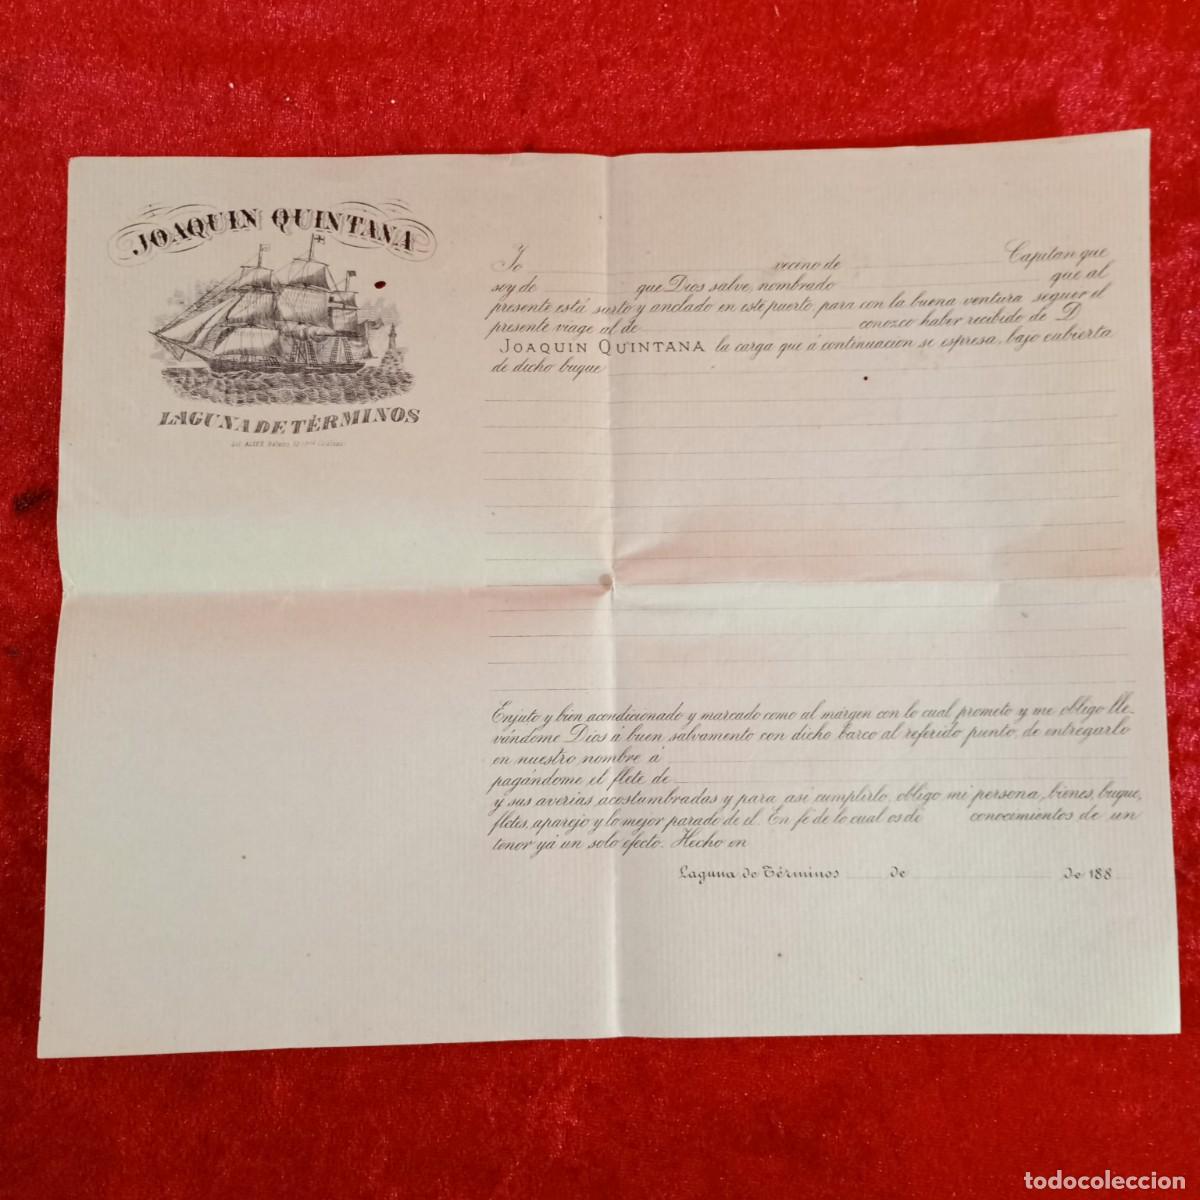 JOAQUIN QUINTANA
LAGUNA DE TÉRMINOS
Yo vecino de Capitan que
soy de que Dios salve, nombrado que al
presente está surto y anclado en este puerto para con la buena ventura seguer el
presente viage al de conozco haber recibido de D
JOAQUIN QUINTANA la carga que á continuacion se espresa, bajo cubierta
de dicho buque
Enjuto y bien acondicionado y marcado como al márgen con lo cual prometo y me obligo lle-
vándome Dios á buen salvamento con dicho barco al referido punto, de entregarlo
en nuestro nombre á
pagándome el flete de
y sus averias acostumbradas y para asi cumplirlo, obligo mi persona, bienes, buque,
fletes, aparejo y lo mejor parado de el. En fé de lo cual os dí conocimientos de un
tenor yá un solo efecto. Hecho en
Laguna de Términos de de 188
todocoleccion